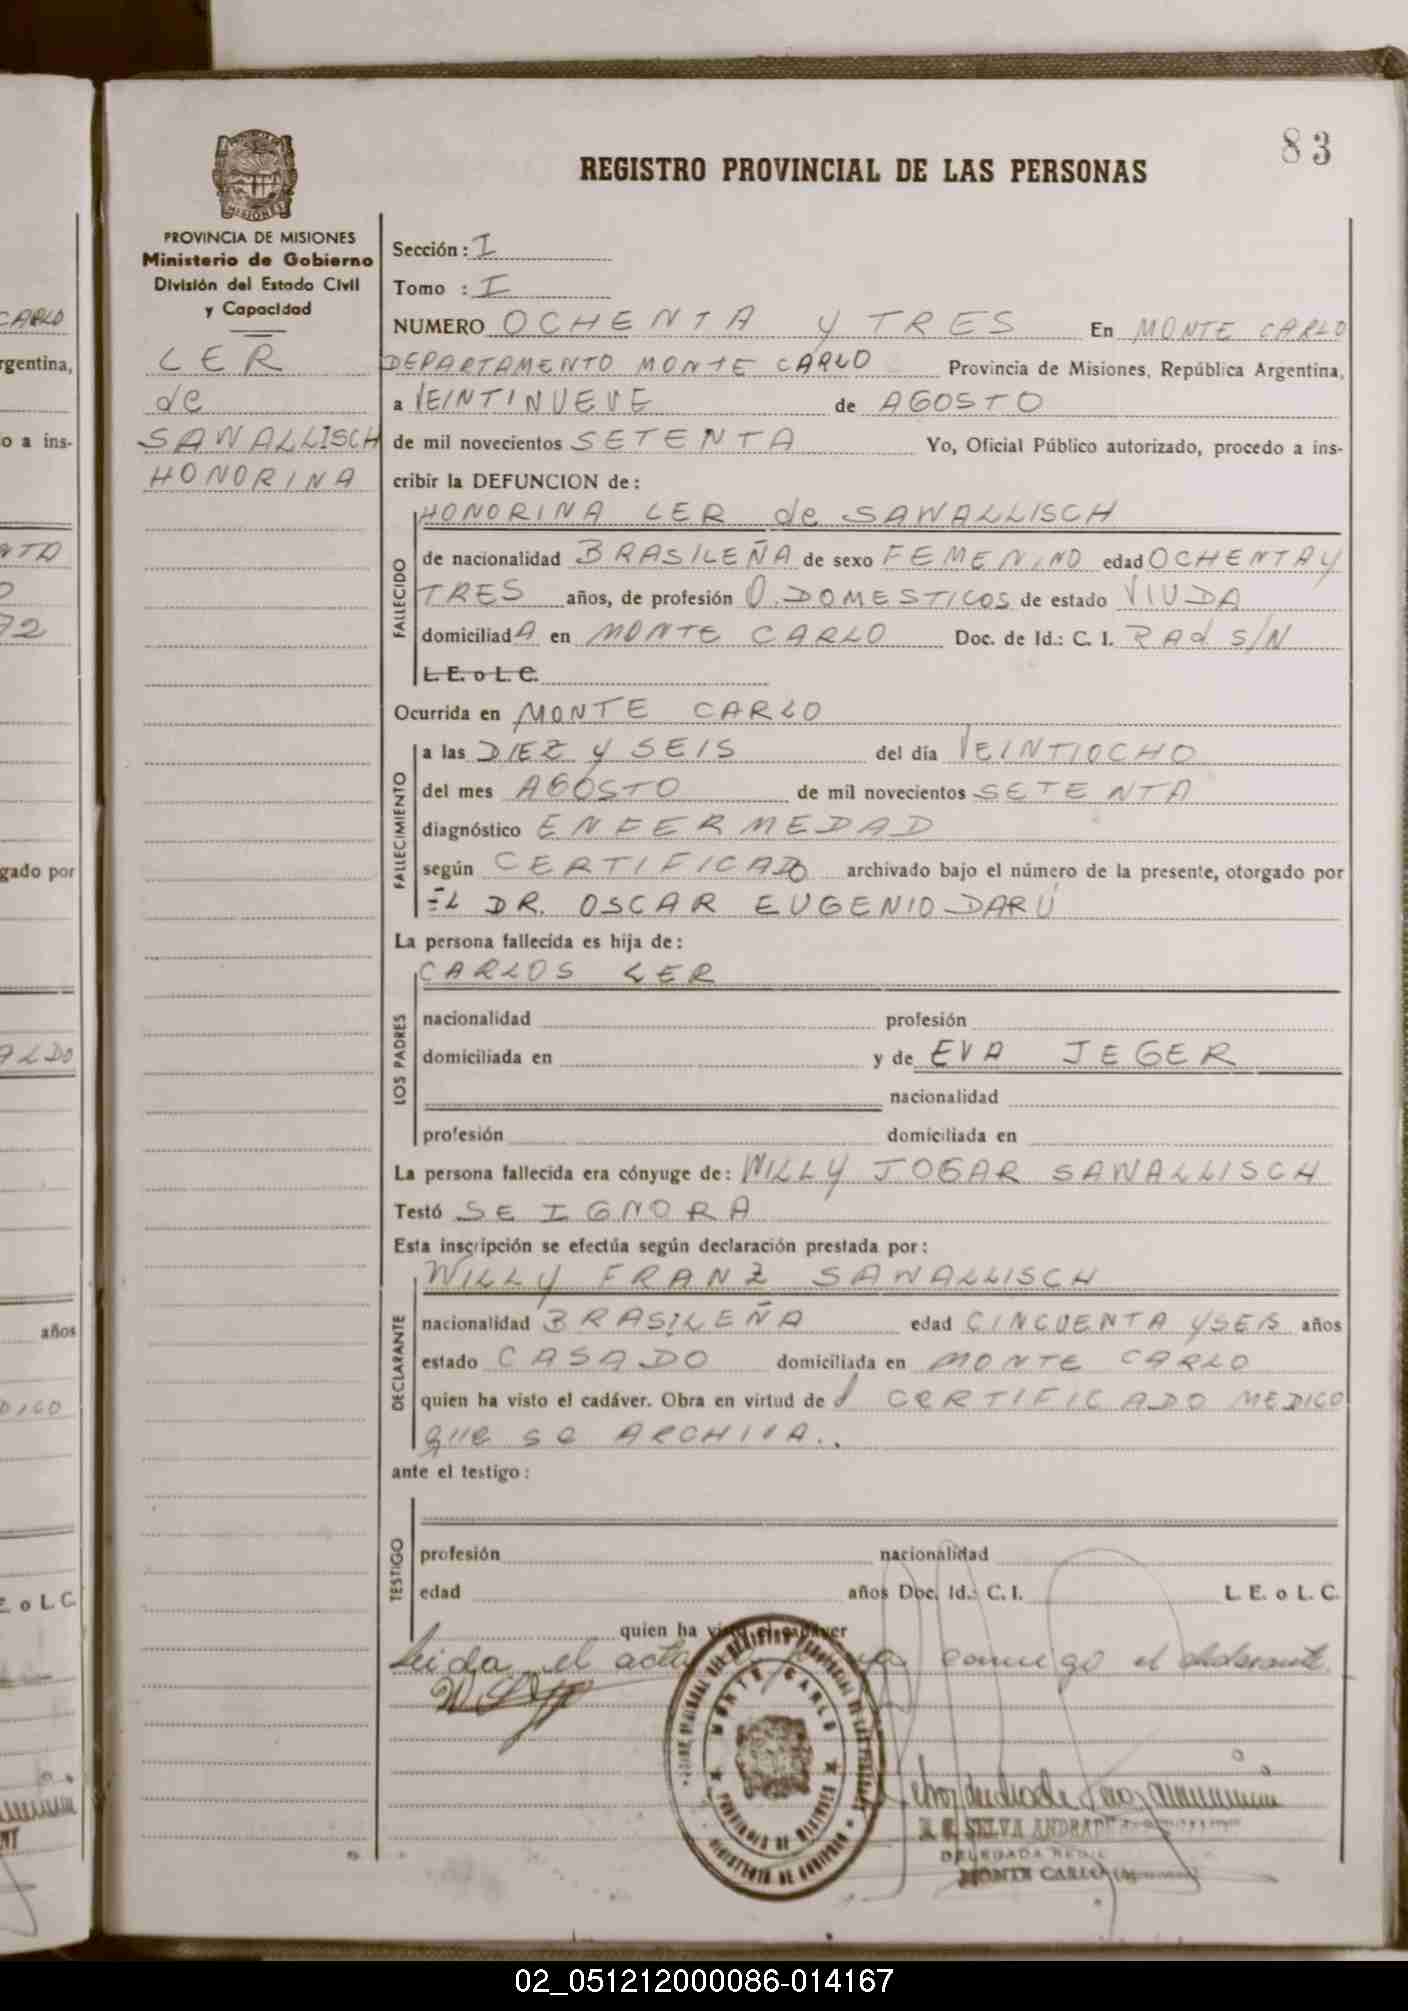 83
REGISTRO PROVINCIAL DE LAS PERSONAS
PROVINCIA DE MISIONES
Ministerio de Gobierno
División del Estado Civil
y Capacidad
LER
de
SAWALLISCH
HONORINA
Sección: I
Tomo : I
NUMERO OCHENTA y TRES En MONTE CARLO
DEPARTAMENTO MONTE CARLO Provincia de Misiones, República Argentina,
a VEINTINUEVE de AGOSTO
de mil novecientos SETENTA Yo, Oficial Público autorizado, procedo a ins-
cribir la DEFUNCION de:
FALLECIDO
HONORINA LER de SAWALLISCH
de nacionalidad BRASILEÑA de sexo FEMENINO edad OCHENTA Y
TRES años, de profesión Q. DOMESTICOS de estado VIUDA
domiciliadA en MONTE CARLO Doc. de Id.: C. I. RAd S/N
L. E. o L. C.
Ocurrida en MONTE CARLO
FALLECIMIENTO
a las DIEZ y SEIS del día VEINTIOCHO
del mes AGOSTO de mil novecientos SETENTA
diagnóstico ENFERMEDAD
según CERTIFICADO archivado bajo el número de la presente, otorgado por
EL DR. OSCAR EUGENIO DARÚ
La persona fallecida es hija de:
LOS PADRES
CARLOS LER
nacionalidad profesión
domiciliada en y de EVA JEGER
nacionalidad
profesión domiciliada en
La persona fallecida era cónyuge de: WILLY JOGAR SAWALLISCH
Testó SE IGNORA
Esta inscripción se efectúa según declaración prestada por:
DECLARANTE
WILLY FRANZ SAWALLISCH
nacionalidad BRASILEÑA edad CINCUENTA Y SEIS años
estado CASADO domiciliada en MONTE CARLO
quien ha visto el cadáver. Obra en virtud de l CERTIFICADO MEDICO
que se ARCHIVA..
ante el testigo:
TESTIGO
profesión nacionalidad
edad años Doc. Id.: C. I. L. E. o L. C.
quien ha visto el cadáver
Leida el acta conmigo el declarante
MONTE CARLO
PROVINCIA DE MISIONES
MINISTERIO DE GOBIERNO
SELVA ANDRADE
DELEGADA
MONTE CARLO
CARLO
rgentina,
o a ins-
72
gado por
ALDO
años
E. o L C.
02_051212000086-014167